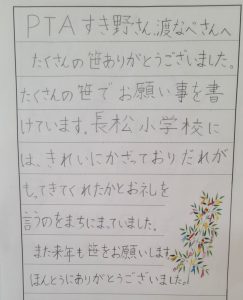 PTAすき野さん、渡なべさんへ
たくさんの笹ありがとうございました。
たくさんの笹でお願い事を書
けています。長松小学校に
は、きれいにかざっておりだれが
もってきてくれたかとお礼を
言うのをまちにまっていました。
また来年も笹をお願いします。
ほんとうにありがとうございました。